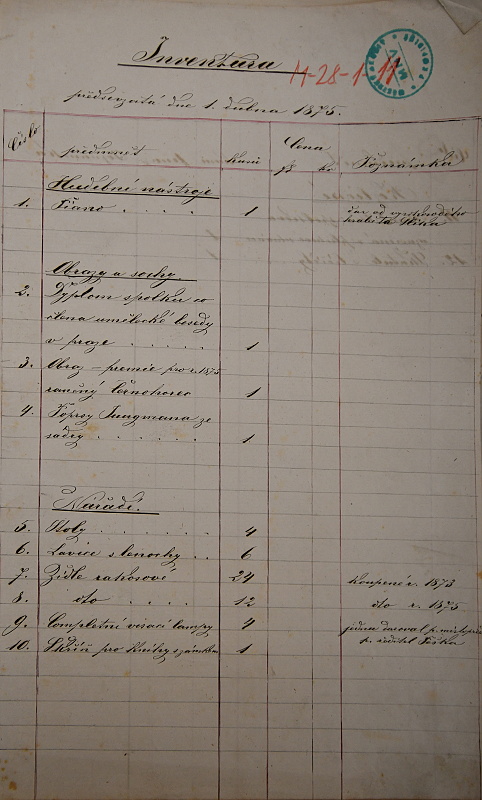 Inventura
11-28-1-11
předsevzatá dne 1. dubna 1875.
Číslo předmět kusů Cena Poznámka
zl. kr.
Hudební nástroje
1. Piano . . . . 1 dar od
hraběte
Obrazy a sochy
2. Dyplom spolku co
člena umělecké besedy
v praze . . . . . 1
3. Obraz – premie pro r. 1875
raněný Černohorec 1
4. Poprsy Jungmana ze
sádry . . . . . . 1
Nářadí.
5. Stoly . . . . . . 4
6. Lavice s lenochy . . 6
7. Židle rakosové 24 koupené r. 1873
8. dto . . . . 12 dto r. 1875
9. Completní visací lampy 4 jednu daroval p.
10. Skříň pro knihy s zámkem 1 p. ředitel